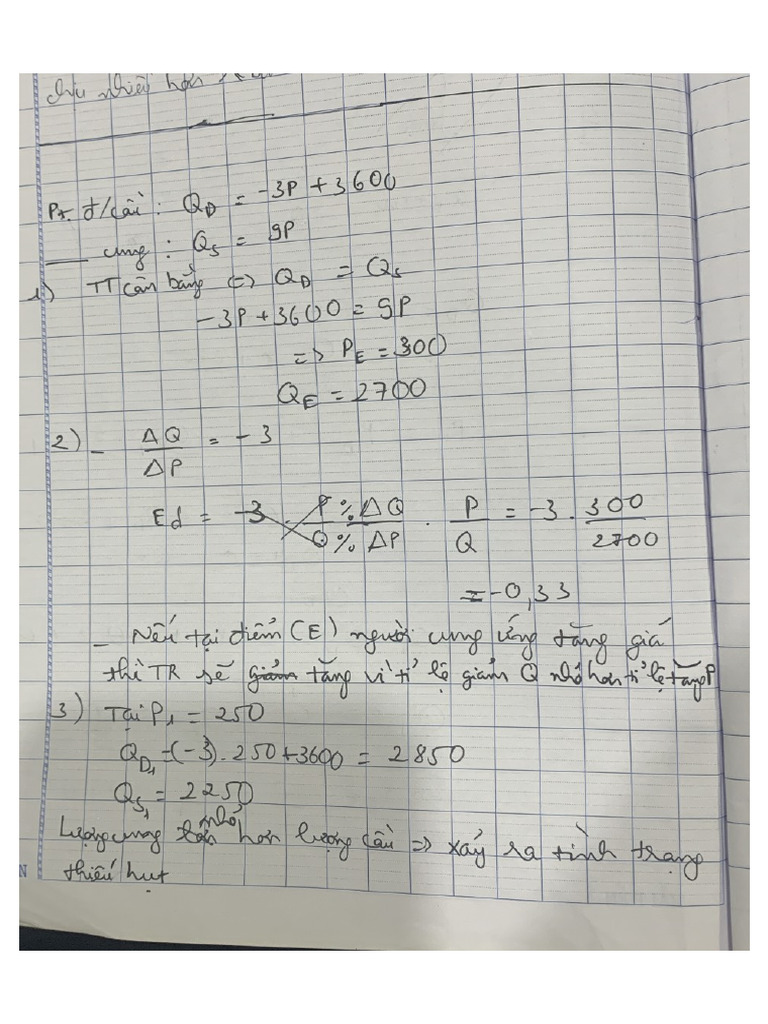 nhiều hơn
Pt. đ/cầu : QD = -3P + 3600
___ cung : QS = 9P
1) TT cân bằng <=> QD = QS
-3P + 3600 = 9P
=> PE = 300
QE = 2700
2) - ΔQ/ΔP = -3
Ed = -3 . P%ΔQ/Q%ΔP . P/Q = -3 . 300/2700
= -0,33
- Nếu tại điểm (E) người cung ứng tăng giá
thì TR sẽ giảm tăng vì tỉ lệ giảm Q nhỏ hơn tỉ lệ tăng P
3) Tại P1 = 250
QD1 = (-3). 250 + 3600 = 2850
QS1 = 2250
Lượng cung lớn nhỏ hơn lượng cầu => xảy ra tình trạng
thiếu hụt